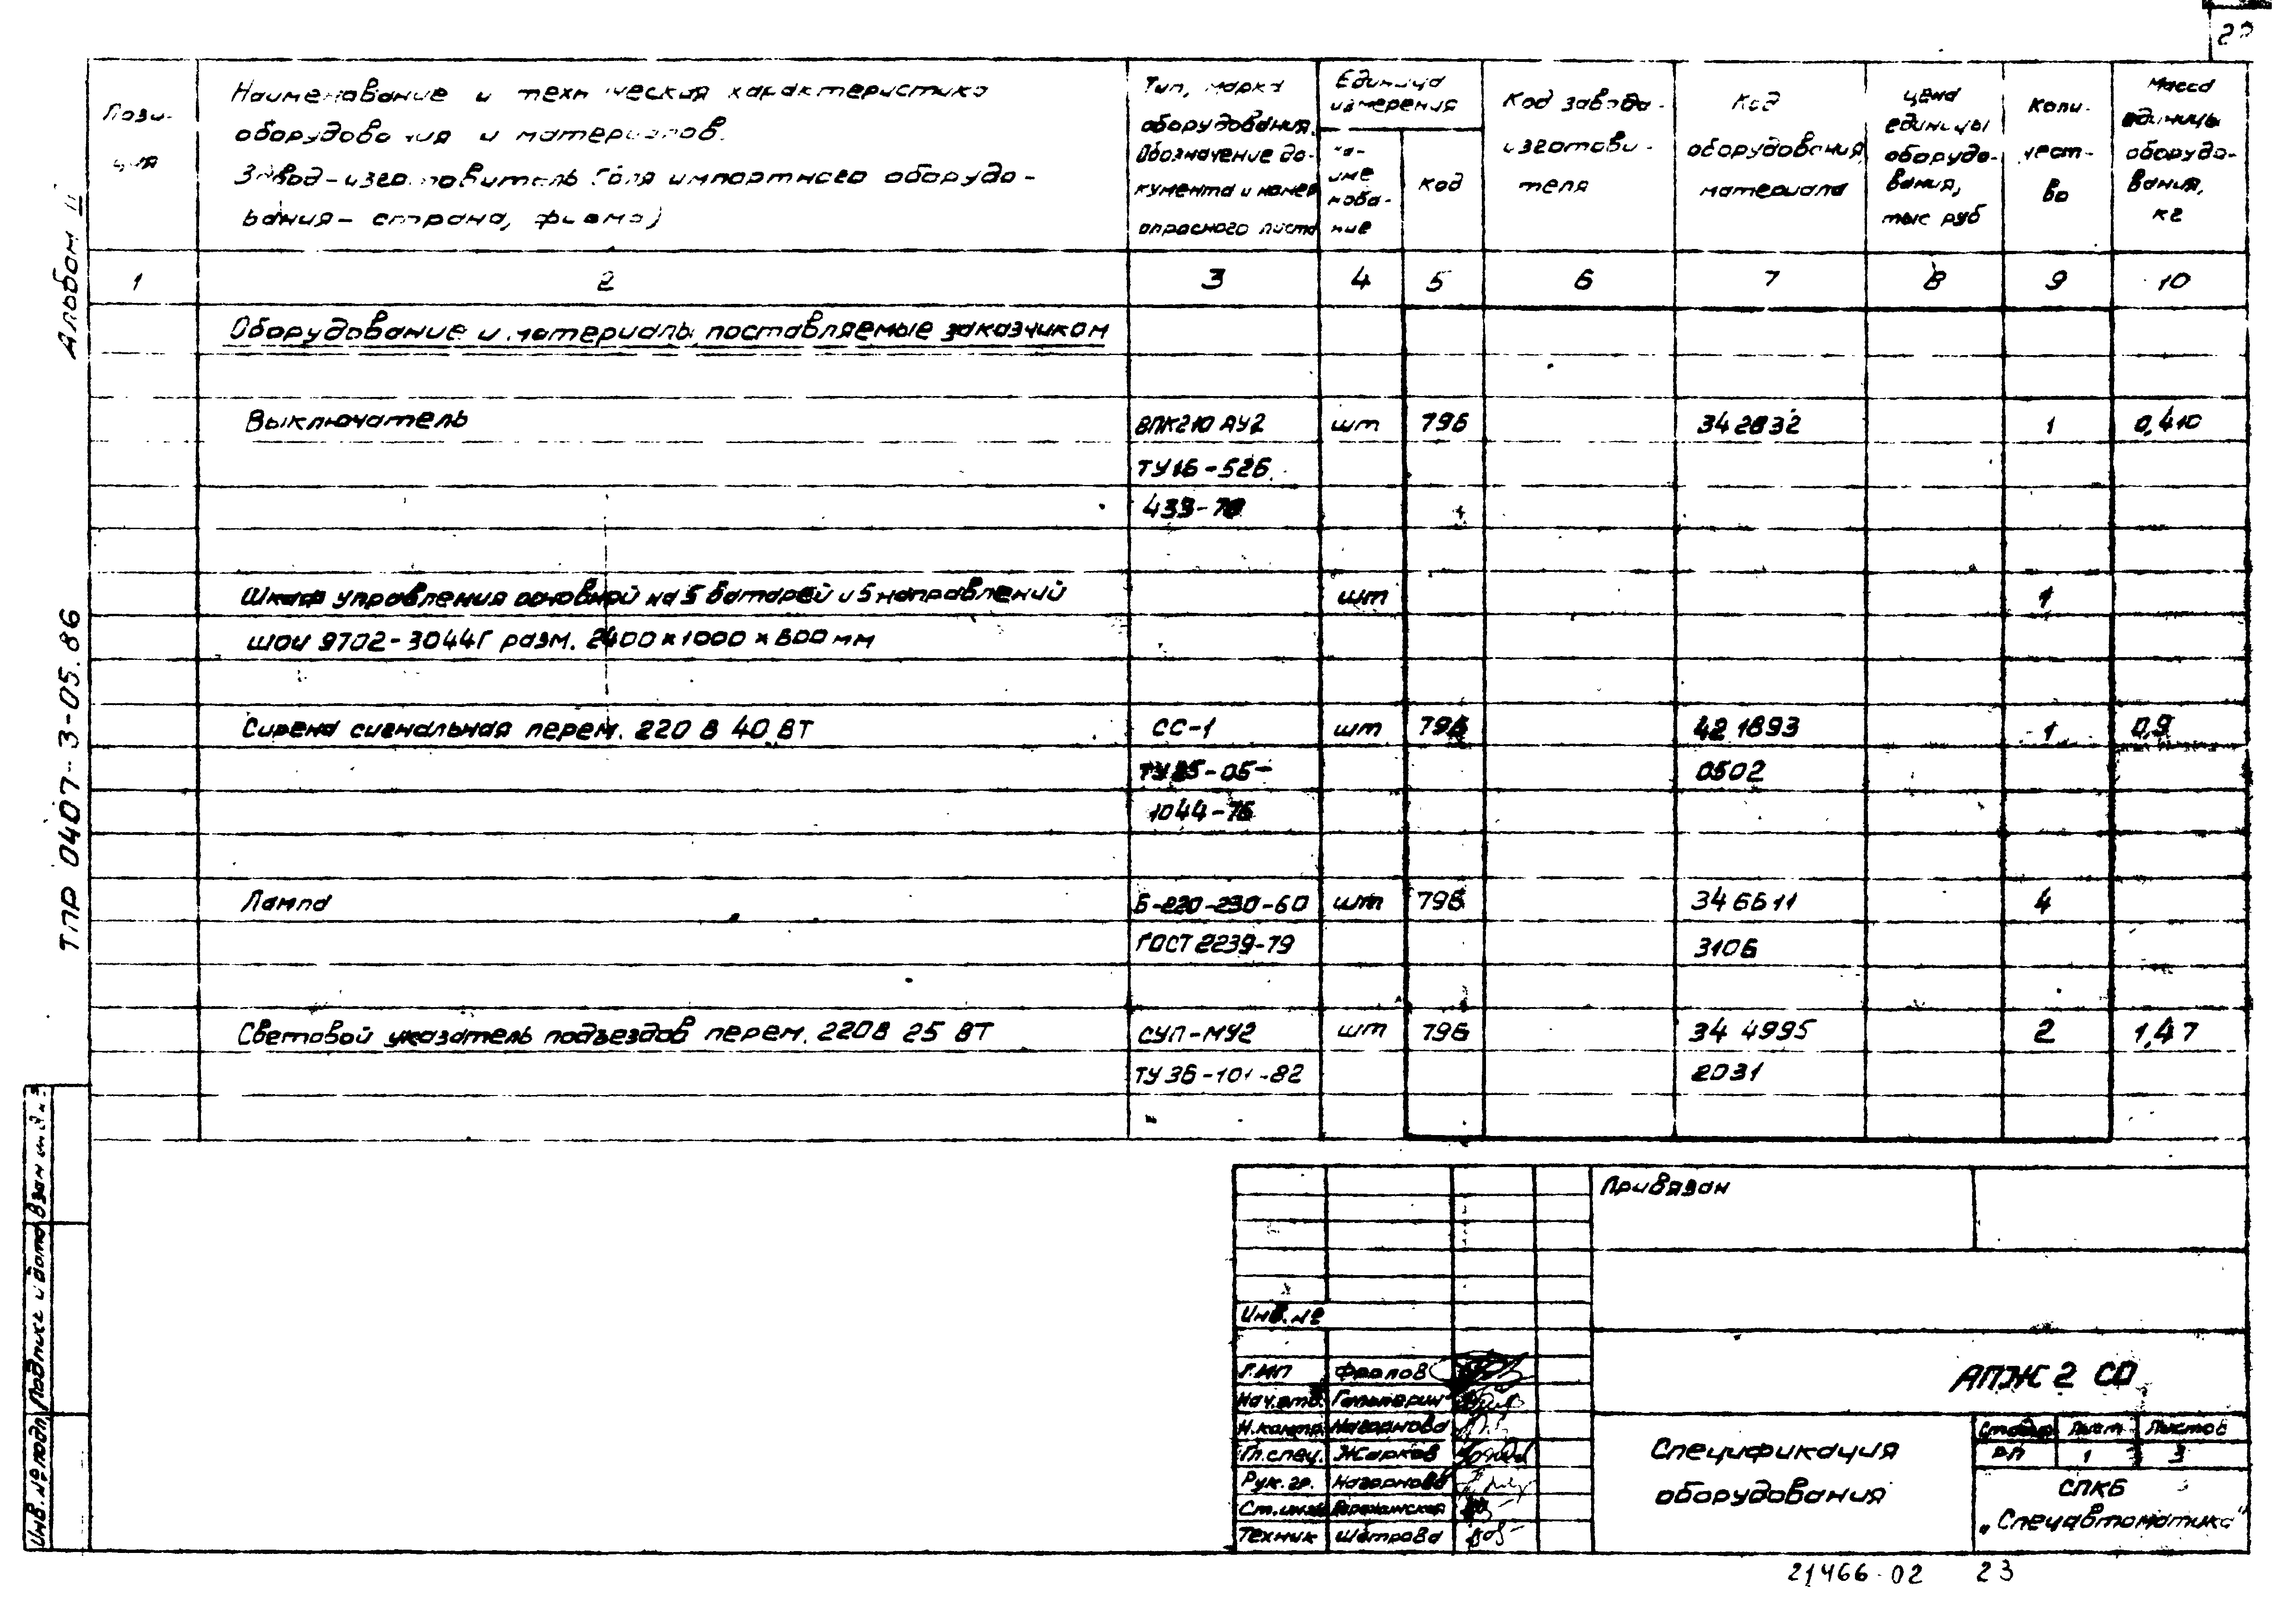 22
Пози-
ция
Наименование и техническая характеристика
оборудования и материалов.
Завод-изготовитель (для импортного оборудо-
вания - страна, фирма)
Тип, марка
оборудования.
Обозначение до-
кумента и номер
опросного листа
Единица
измерения
на-
име
нова-
ние
Код
Код завода-
изготови-
теля
Код
оборудования,
материала
Цена
единицы
оборудо-
вания,
тыс руб
Коли-
чест-
во
Масса
единицы
оборудо-
вания,
кг
1 2 3 4 5 6 7 8 9 10
Оборудование и материалы, поставляемые заказчиком
Выключатель ВПК2110 АУ2 шт 796 342832 1 0,410
ТУ16-526.
433-78
Шкаф управления основной на 5 батарей и 5 направлений шт 1
ШОУ 9702-3044Г разм. 2400х1000х800мм
Сирена сигнальная перем. 220 В 40 ВТ СС-1 шт 796 42 1893 1 0,9
ТУ25-05- 0502
1044-76
Лампа Б-220-230-60 шт 796 346611 4
ГОСТ 2239-79 3106
Световой указатель подъездов перем. 220В 25 ВТ СУП-МУ2 шт 796 34 4995 2 1,47
ТУ36-101-82 2031
Альбом II
ТПР 0407-3-05.86
Взам инв.№
Подпись и дата
Инв.№ подл
Привязан
Инв.№
ГИП Фролов
Нач.отд. Гальперин
Н.контр. Нагорнова
Гл.спец. Жарков
Рук.гр. Нагорнова
Ст.инж
Техник Шатрова
АПЖ 2 СО
Спецификация
оборудования
Стадия Лист Листов
РП 1 3
СПКБ
„Спецавтоматика"
21466-02 23